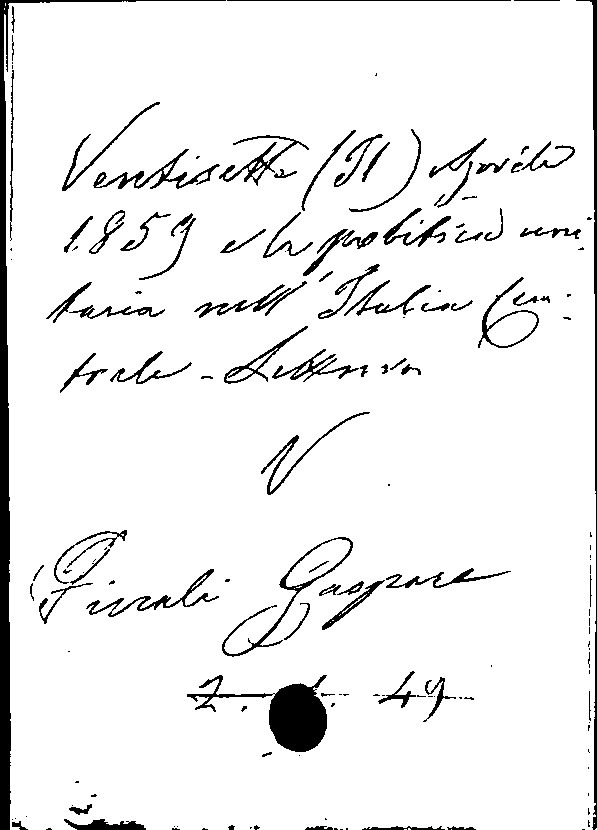 Ventisette (Il) Aprile
1859 e la politica uni-
taria nell'Italia Cen-
trale - Lettera
V
Gaspare
2. . 49